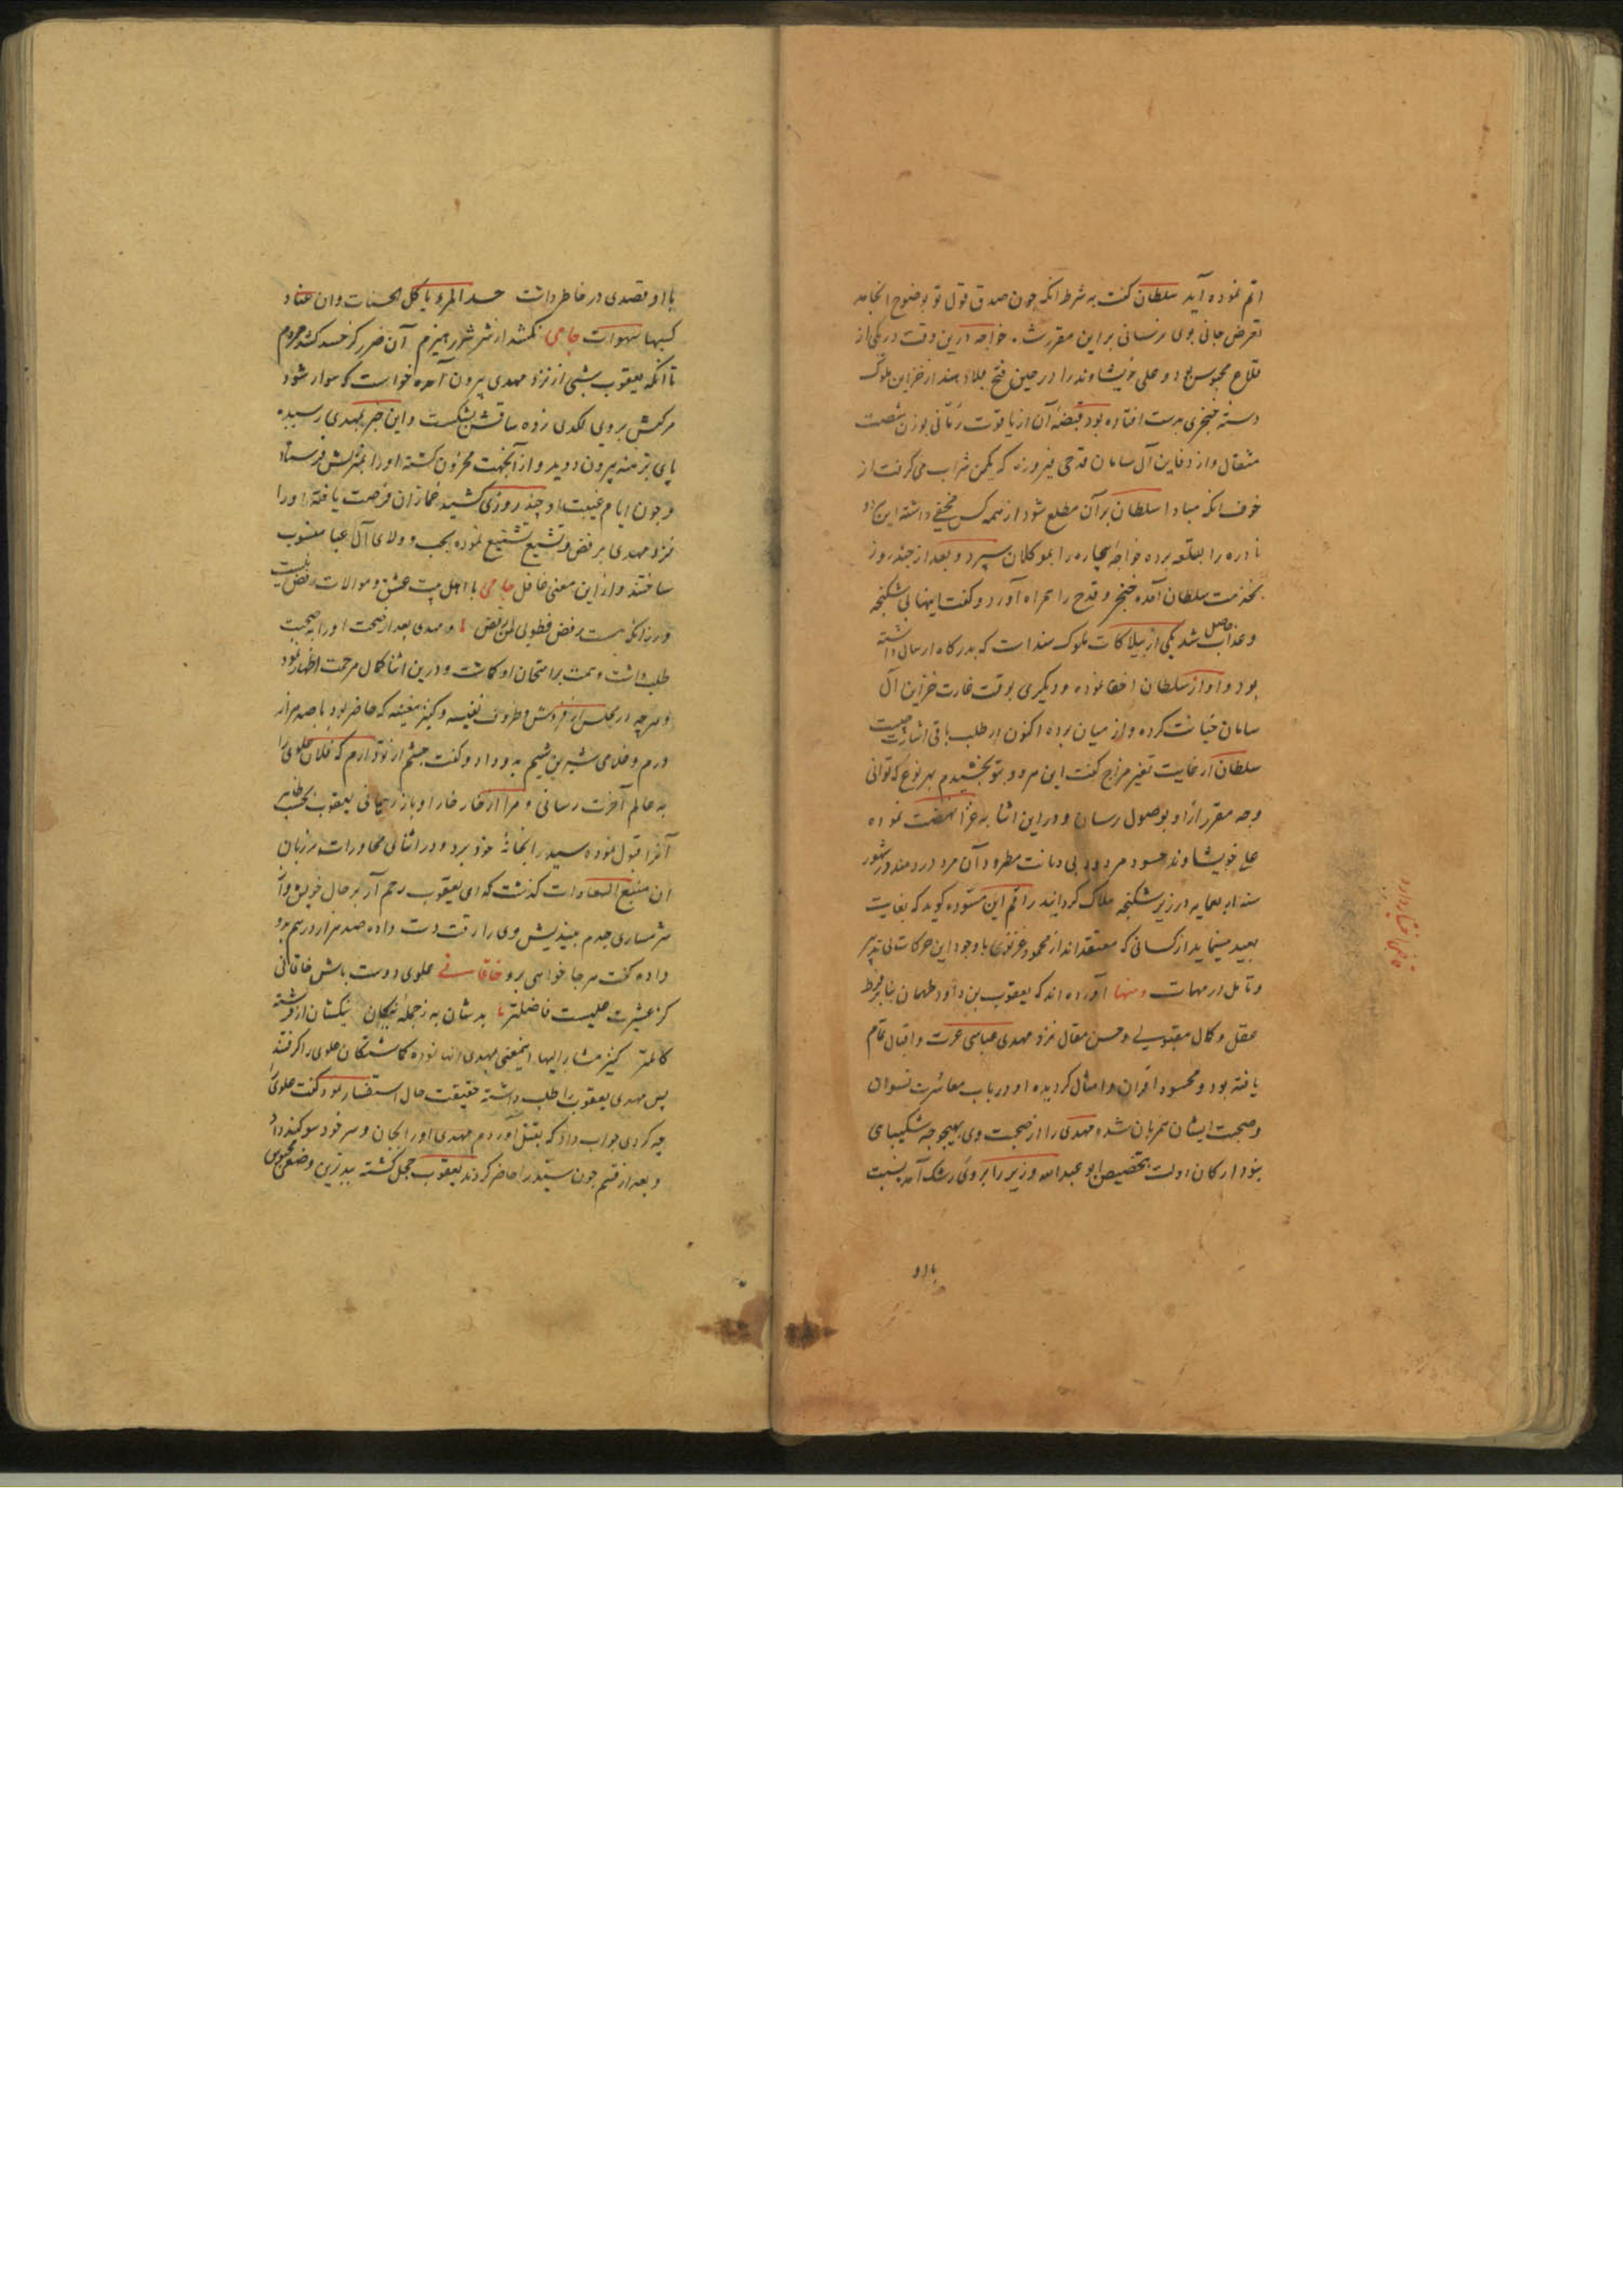 اتم نموده آید سلطان گفت به شرط انکه چون صدق قول تو بوضوح انجامد
تعرض جانی بوی نرسانی براین مقرر شد خواجه درین وقت در یکی از
قلاع محبوس بود و علی خویشاوند را در حین فتح بلاد هند از خزاین ملوک
دسته خنجری بدست افتاده بود قبضهٔ آن از یاقوت رمانی بوزن شصت
مثقال و از دفاین آل سامان قدحی فیروزه که یکمن شراب می گرفت از
خوف انکه مبادا سلطان برآن مطلع شود از همه کس مخفی داشته این دو
نادره را بقلعه برده خواجهٔ بیچاره را بموکلان سپرد و بعد از چند روز
بخدمت سلطان آمده خنجر و قدح را همراه آورد و گفت اینها بی شکنجه
و عذاب حاصل شد یکی از بیلاکات ملوک هند است که بدرگاه ارسال داشته
بود و او از سلطان اخفا نموده و دیگری بوقت غارت خزاین آل
سامان خیانت کرده و از میان برده اکنون در طلب باقی اشارت چیست
سلطان از غایت تغیر مزاج گفت این هر دو بتو بخشیدم بهر نوع که توانی
وجه مقرر از او بوصول رسان و در این اثنا به غزا نهضت نموده
علی خویشاوند حسود مردود بی دیانت مطرود آن مرد دردمند را در شهور
در زیر شکنجه هلاک گردانید راقم این مسوده گوید که بغایت
بعید مینماید از کسانی که معتقدند از محمود غزنوی با وجود این حرکات بی تدبیر
و تامل در مهمات ومنها آورده اند که یعقوب بن داود طهمان بنا بر فرط
عقل و کمال مقبولی و حسن مقال نزد مهدی عباسی عزت و اقبال تمام
یافته بود و محسود اقران و امثال گردیده او در باب معاشرت نسوان
و صحبت ایشان همزبان شده مهدی را از صحبت وی بهیچوجه شکیبای
نبود ارکان دولت بتخصیص ابو عبدالله وزیر را بر وی رشک آمد بنسبت
با او
با او قصدی در خاطر داشت حسد المرء یاکل الحسنات وان عتاد
کسبها سهوات جامی نکشد از شرر شرر هیزم آن ضرر کز حسد کشد مردم
تا آنکه یعقوب شبی از نزد مهدی بیرون آمده خواست که سوار شود
مرکبش بروی لگدی زده ساقش بشکست و این خبر بمهدی رسیده
پای برهنه بیرون دوید و از آنجهت محزون گشته او را بمنزلش فرستاد
و چون ایام غیبت او چند روزی کشید غمازان فرصت یافته او را
نزد مهدی برفض و تشیع تشنیع نموده بحب و ولای آل عبا منسوب
ساختند و از این معنی غافل جامی با اهل بیت عشق و موالات رفض نیست
ور زانکه هست رفض فطوبی لمن رفض و مهدی بعد از صحت او را به صحبت
طلب داشت و همت بر امتحان او گماشت و درین اثنا کمال مرحمت اظهار نمود
و هر چه در مجلس از فرش و ظروف نفیسه و کنیز مغنیه که حاضر بود با صد هزار
درم و غلامی شیرین شیم به وی داد و گفت چشم از تو دارم که فلان علوی را
به عالم آخرت رسانی و مرا از خار خار او باز رهانی یعقوب بحسب ظاهر
آنرا قبول نموده سید را بخانهٔ خود برد و در اثنای محاورات بر زبان
آن منبع السعادات گذشت که ای یعقوب رحم آر بر حال خویش و از
شرمساری جدم بیندیش وی را رقت دست داده صد هزار درهم بدو
داده گفت هر جا خواهی برو خاقانی علوی دوست باش خاقانی
کز عشیرت علیست فاضلتر بدشان به ز جملهٔ نیکان نیکشان از فرشته
کاملتر کنیز مشار الیها اینمعنی بمهدی انها نموده گماشتگان علوی را گرفتند
پس مهدی یعقوب را طلب داشته حقیقت حال استفسار نمود گفت علوی را
چه کردی جواب داد که بقتل آوردم مهدی او را بجان و سر خود سوگند داد
و بعد از قسم چون سید را حاضر کردند یعقوب خجل گشته ببدترین وضعی محبوس